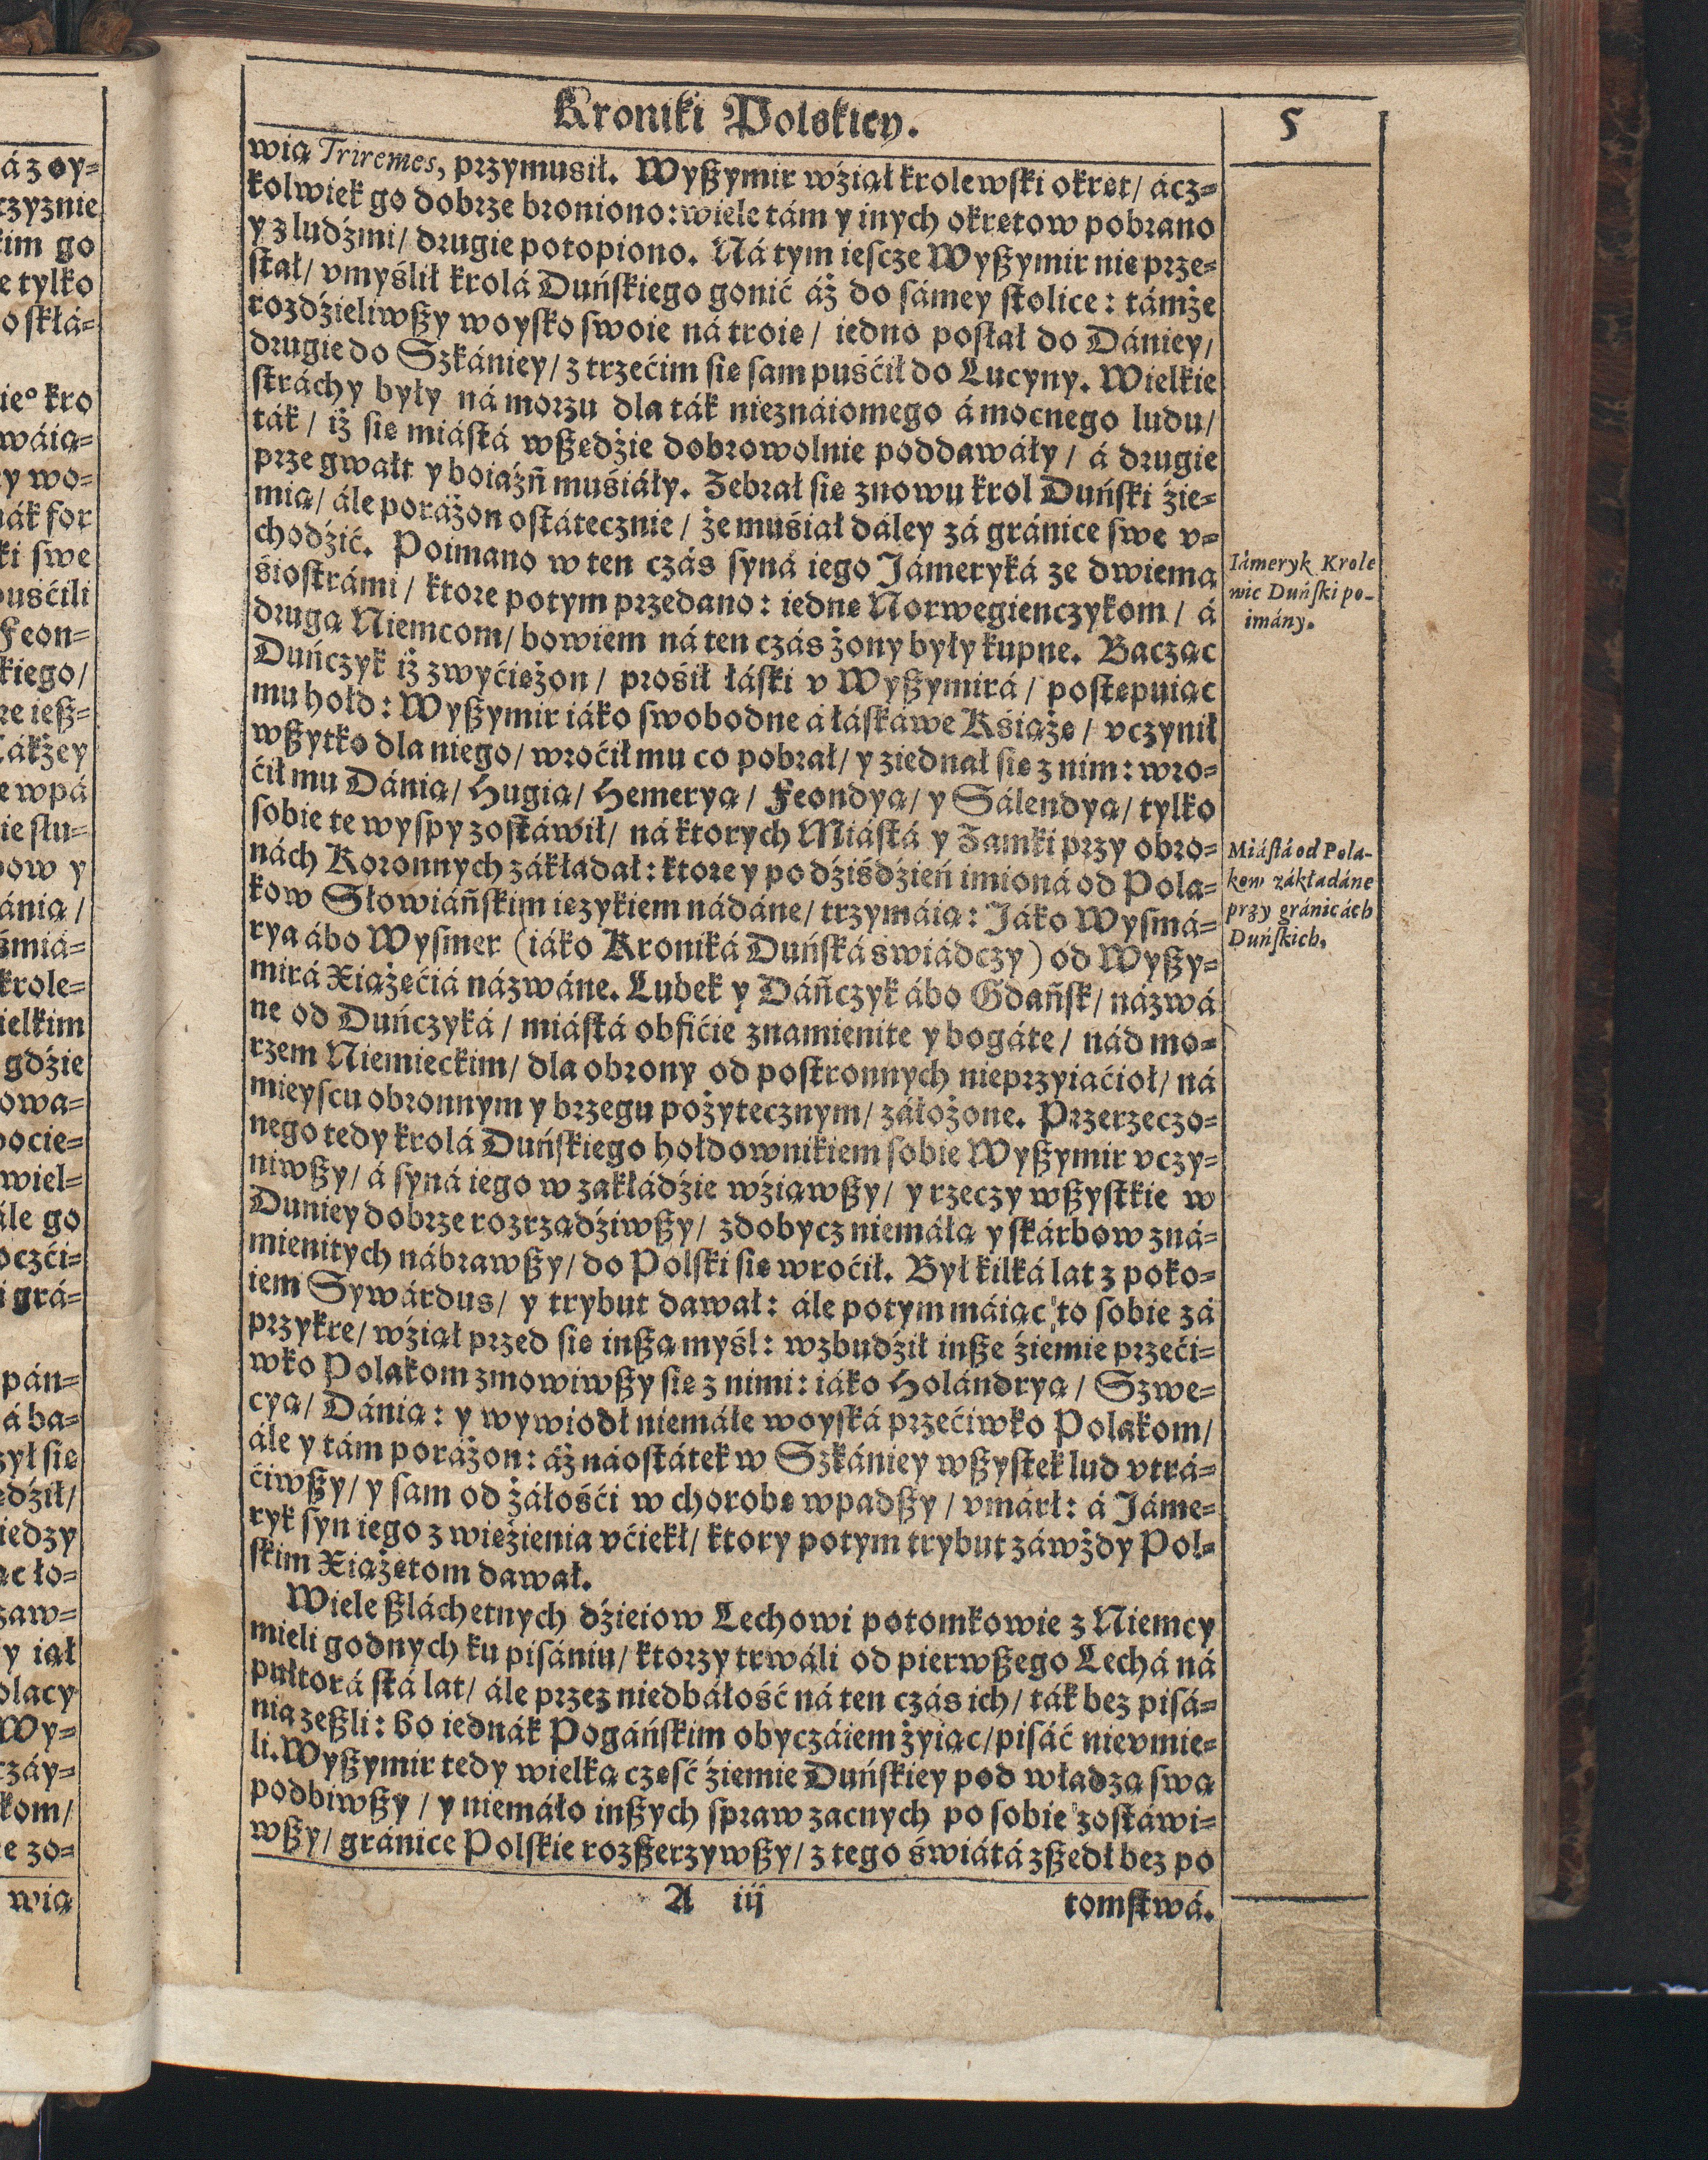 Kroniki Polskiey.
5
wią Triremes, przymusił. Wyßymir wźiął krolewski okręt/ ácz=
kolwiek go dobrze broniono: wiele tám y inych okrętow pobrano
y z ludźmi/ drugie potopiono. Ná tym iescze Wyßymir nie prze=
stał/ vmyślił krolá Duńskiego gonić áż do sámey stolice: támże
rozdźieliwßy woysko swoie ná troie/ iedno posłał do Dániey/
drugie do Szkániey/ z trzećim się sam puśćił do Lucyny. Wielkie
stráchy były ná morzu dla ták nieznáiomego á mocnego ludu/
ták/ iż się miástá wßędźie dobrowolnie poddawáły/ á drugie
prze gwałt y boiáźń muśiáły. Zebrał się znowu krol Duński źie=
mią/ ále poráżon ostátecznie/ że muśiał dáley zá gránice swe v=
chodźić. Poimano w ten czás syná iego Jámeryká ze dwiemá
śiostrámi/ ktore potym przedano: iednę Norwegienczykom/ á
drugą Niemcom/ bowiem ná ten czás żony były kupne. Bacząc
Duńczyk iż zwyćiężon/ prośił łáski v Wyßymirá/ postępuiąc
mu hołd: Wyßymir iáko swobodne á łáskáwe Kśiążę/ vczynił
wßytko dla niego/ wroćił mu co pobrał/ y ziednał się z nim: wro=
ćił mu Dánią/ Hugią/ Hemeryą/ Feondyą/ y Sálendyą/ tylko
sobie te wyspy zostáwił/ ná ktorych Miástá y Zamki przy obro=
nách Koronnych zákładał: ktore y po dźiśdźień imioná od Pola=
kow Słowiáńskim ięzykiem nádáne/ trzymáią: Jáko Wysmá=
rya ábo Wysmer (iáko Kroniká Duńska swiádczy) od Wyßy=
mirá Xiążęćiá názwáne. Lubek y Dáńczyk ábo Gdańsk/ názwá
ne od Duńczyká/ miástá obfićie znamienite y bogáte/ nád mo=
rzem Niemieckim/ dla obrony od postronnych nieprzyiaćioł/ ná
mieyscu obronnym y brzegu pożytecznym/ záłożone. Przerzeczo=
nego tedy krolá Duńskiego hołdownikiem sobie Wyßymir vczy=
niwßy/ á syná iego w zakłádźie wźiąwßy/ y rzeczy wßystkie w
Duniey dobrze rozrządźiwßy/ zdobycz niemáłą y skárbow zná=
mienitych nábrawßy/ do Polski się wroćił. Był kilká lat z poko=
iem Sywárdus/ y trybut dawał: ále potym máiąc to sobie zá
przykre/ wźiął przed się inßą myśl: wzbudźił inße źiemie przeći=
wko Polakom zmowiwßy się z nimi: iáko Holándryą/ Szwe=
cyą/ Dánią: y wywiodł niemáłe woyská przećiwko Polakom/
ále y tám poráżon: áż náostátek w Szkániey wßystek lud vtrá=
ćiwßy/ y sam od żáłośći w chorobę wpadßy/ vmárł: á Jáme=
ryk syn iego z więźienia vćiekł/ ktory potym trybut záwżdy Pol=
skim Xiążętom dawał.
Wiele ßláchetnych dźieiow Lechowi potomkowie z Niemcy
mieli godnych ku pisániu/ ktorzy trwáli od pierwßego Lechá ná
pułtorá stá lat/ ále przez niedbáłość ná ten czás ich/ ták bez pisá=
nia zeßli: bo iednák Pogáńskim obyczáiem żyiąc/ pisáć nievmie=
li. Wyßymir tedy wielką część źiemie Duńskiey pod władzą swą
podbiwßy/ y niemáło inßych spraw zacnych po sobie zostáwi=
wßy/ gránice Polskie rozßerzywßy/ z tego świátá zßedł bez po
A iij
tomstwá.
Iámeryk Krole
wic Duński po-
imány.
Miástá od Pola-
kow zákładáne
przy gránicách
Duńskich.
á z oy=
rzyznie
kim go
e tylko
o skłá=
ie° kro
wáią=
y wo=
nák for
ki swe
puśćili
Feon=
kiego/
re ieß=
Tákżey
e wpá
ie słu=
bow y
ánią/
śmiá=
krole=
ielkim
gdźie
owa=
ocie=
wiel=
ále go
oczći=
i grá=
pán=
á ba=
zył się
edźił/
iedzy
ąc ło=
zaw=
y iął
olacy
Wy=
rzáy=
kom/
e zo=
wią